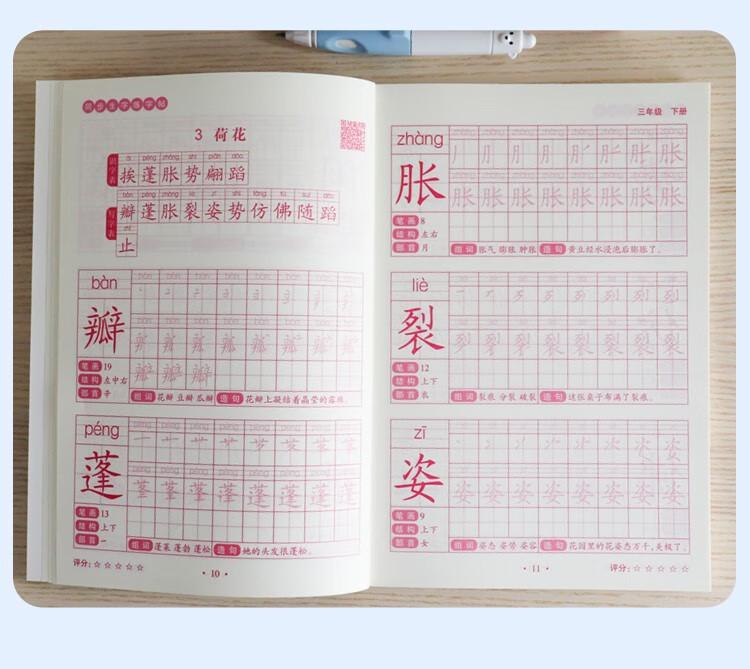 同步生字练字帖
3 荷花
识字表
āi péng zhàng shì piān dǎo
挨 蓬 胀 势 翩 蹈
写字表
bàn péng zhàng liè zī shì fǎng fú suí dǎo
瓣 蓬 胀 裂 姿 势 仿 佛 随 蹈
zhǐ
止
bàn
瓣
笔画 19
结构 左中右
部首 辛
组词 花瓣 豆瓣 瓜瓣 造句 花瓣上凝结着晶莹的露珠。
péng
蓬
笔画 13
结构 上下
部首 艹
组词 蓬莱 蓬勃 蓬松 造句 她的头发很蓬松。
评分：☆☆☆☆☆
· 10 ·
三年级 下册
zhàng
胀
笔画 8
结构 左右
部首 月
组词 胀气 膨胀 肿胀 造句 黄豆经水浸泡后膨胀了。
liè
裂
笔画 12
结构 上下
部首 衣
组词 裂痕 分裂 破裂 造句 这张桌子布满了裂痕。
zī
姿
笔画 9
结构 上下
部首 女
组词 姿态 姿势 姿容 造句 花园里的花姿态万千，美极了。
· 11 ·
评分：☆☆☆☆☆